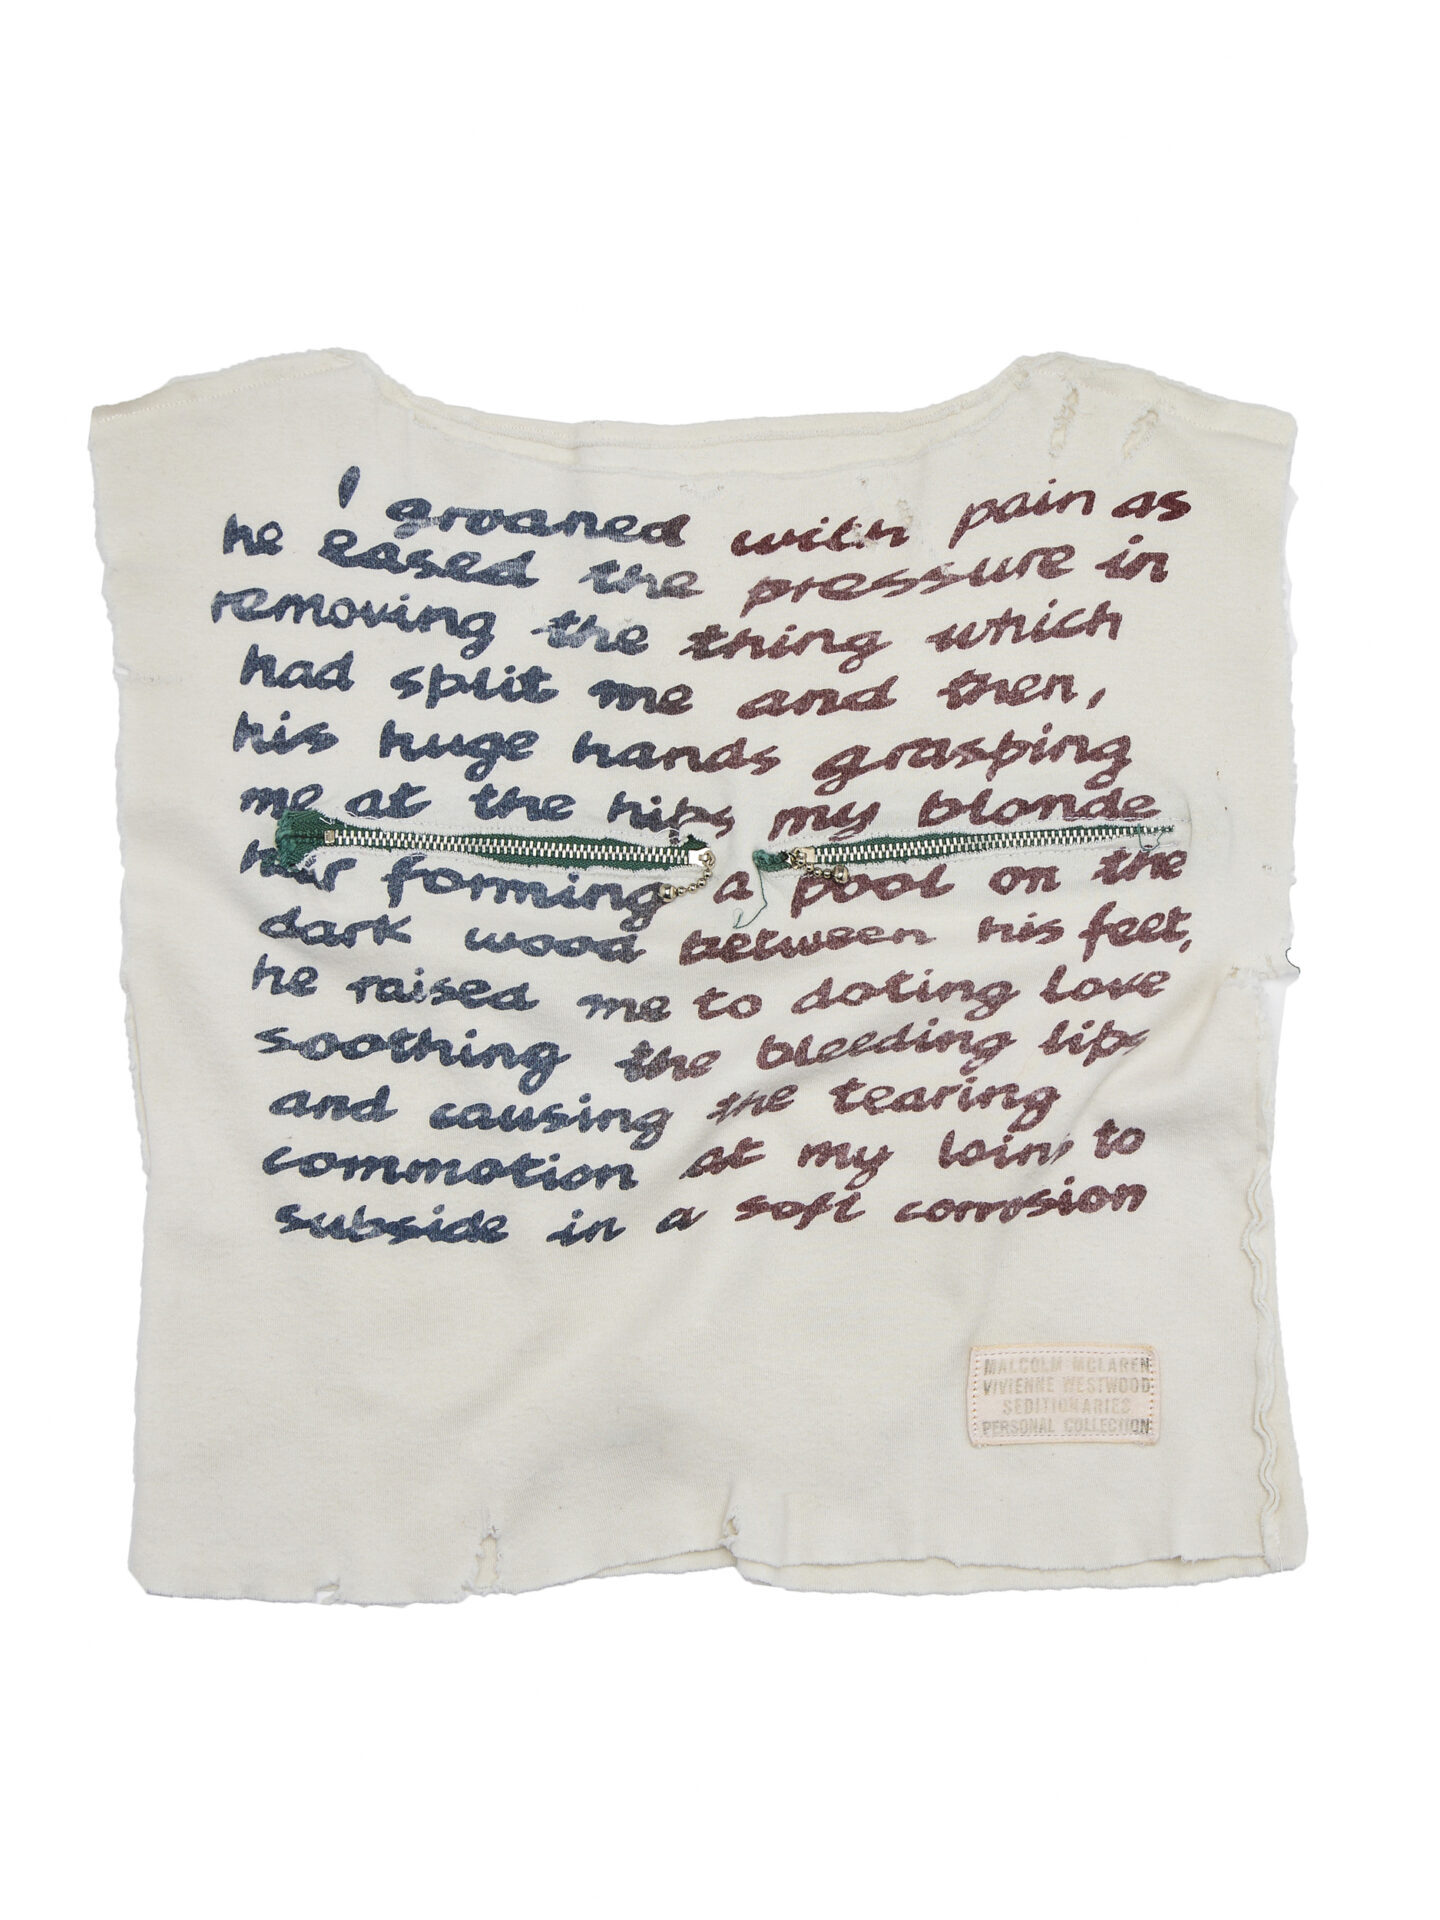 I groaned with pain as
he eased the pressure in
removing the thing which
had split me and then,
his huge hands grasping
me at the hips my blonde
hair forming a pool on the
dark wood between his feet,
he raised me to doting love
soothing the bleeding lips
and causing the tearing
commotion at my loins to
subside in a soft corrosion
MALCOLM MCLAREN
VIVIENNE WESTWOOD
SEDITIONARIES
PERSONAL COLLECTION